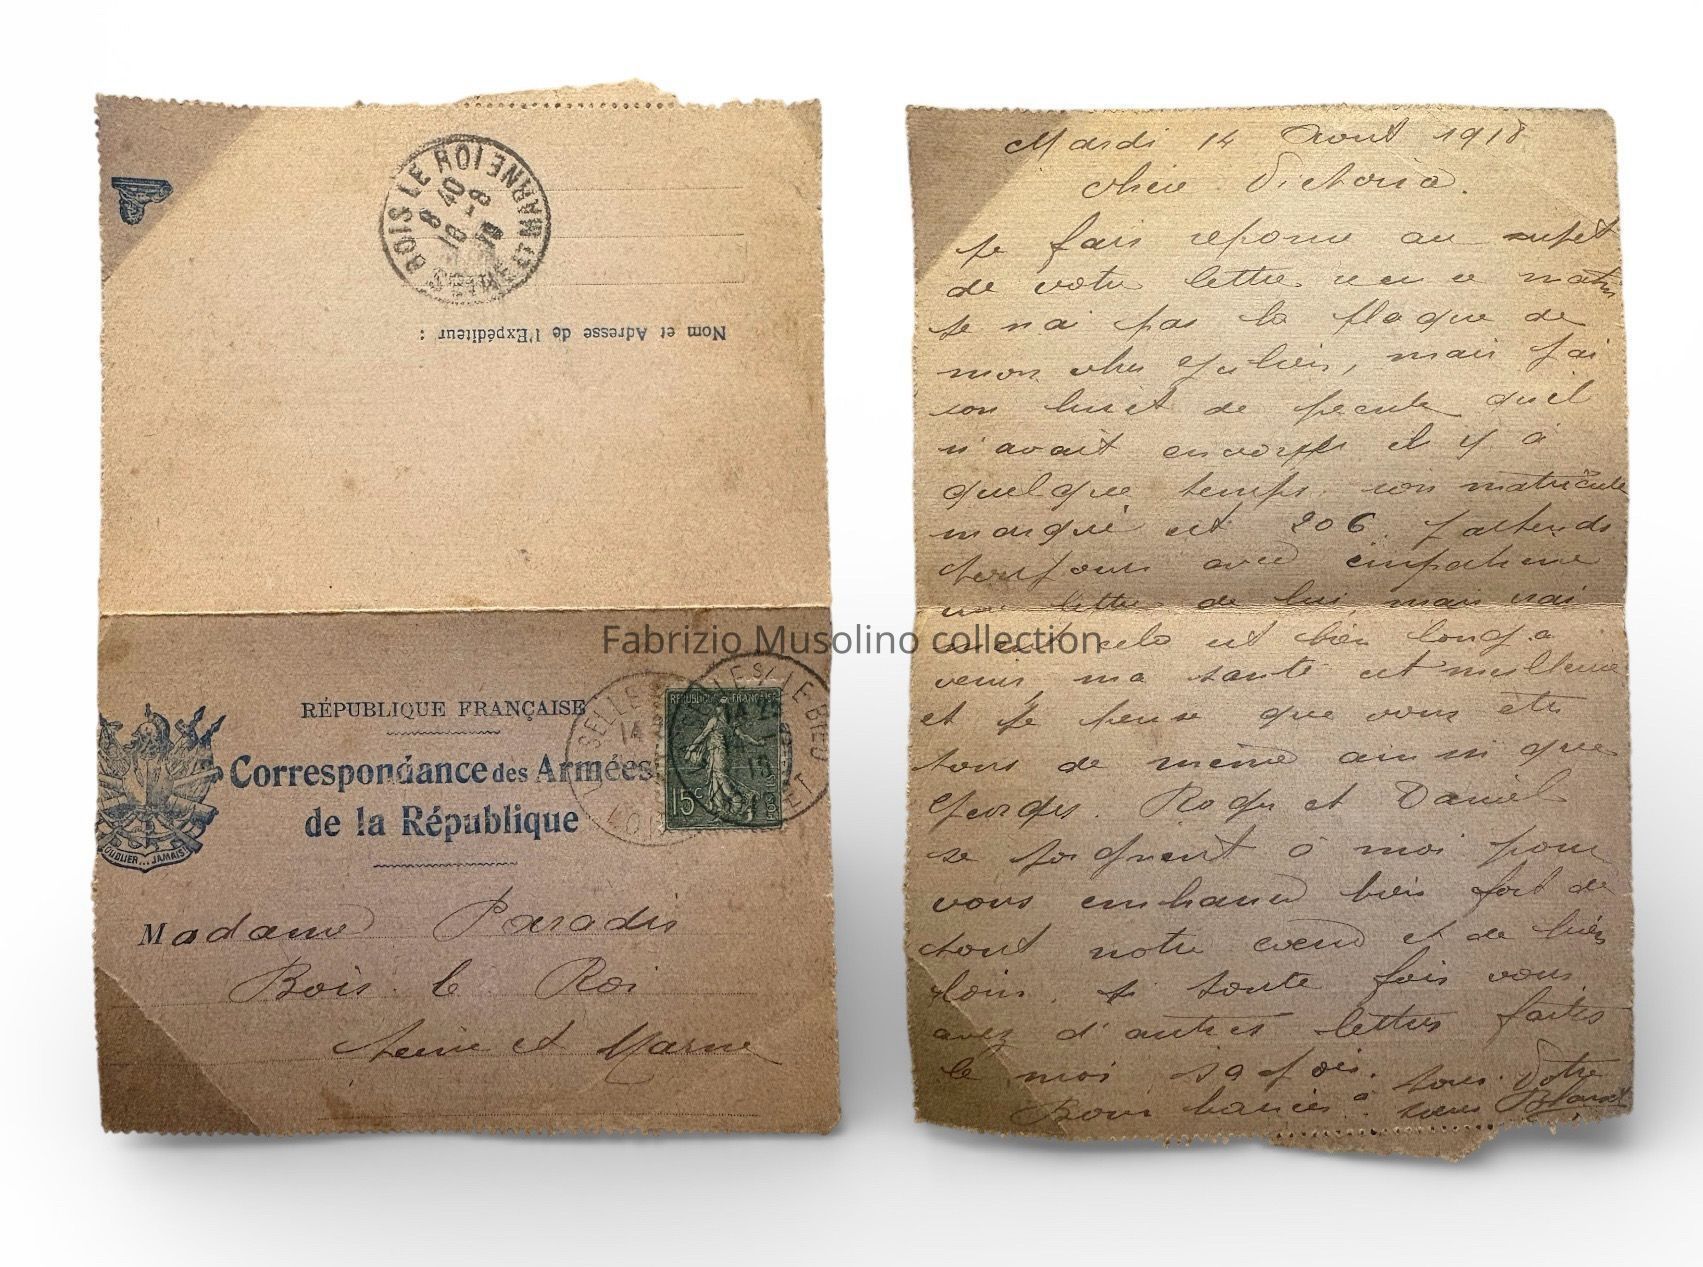 BOIS LE ROI
8 40
SEINE ET MARNE
Nom et Adresse de l'Expéditeur :
RÉPUBLIQUE FRANÇAISE
Correspondance des Armées
de la République
OUBLIER...JAMAIS!
REPUBLIQUE FRANÇAISE
15c
Madame Paradis
Bois le Roi
Seine et Marne
Mardi 14 Aout 1918
Chère Victoria.
Je fais reponse au sujet
de votre lettre recu ce matin
Je n'ai pas la plaque de
mon cher Julien, mais j'ai
son livret de pecule qu'il
n'avait envoyé il y à
quelque temps son matricule
marqué est 206 j'attends
toujours avec impatience
une lettre de lui, mais vrai
ment cela est bien long a
venir ma santé est meilleure
et je pense que vous ète
tous de même ainsi que
Georges. Roger et Daniel
se joignent à moi pour
vous embrasser bien fort de
tout notre coeur et de bien
loin. si toute fois vous
avez d'autres lettres faites
le moi savoir.
Bons baisers à tous. Votre
soeur Blanche
Fabrizio Musolino collection